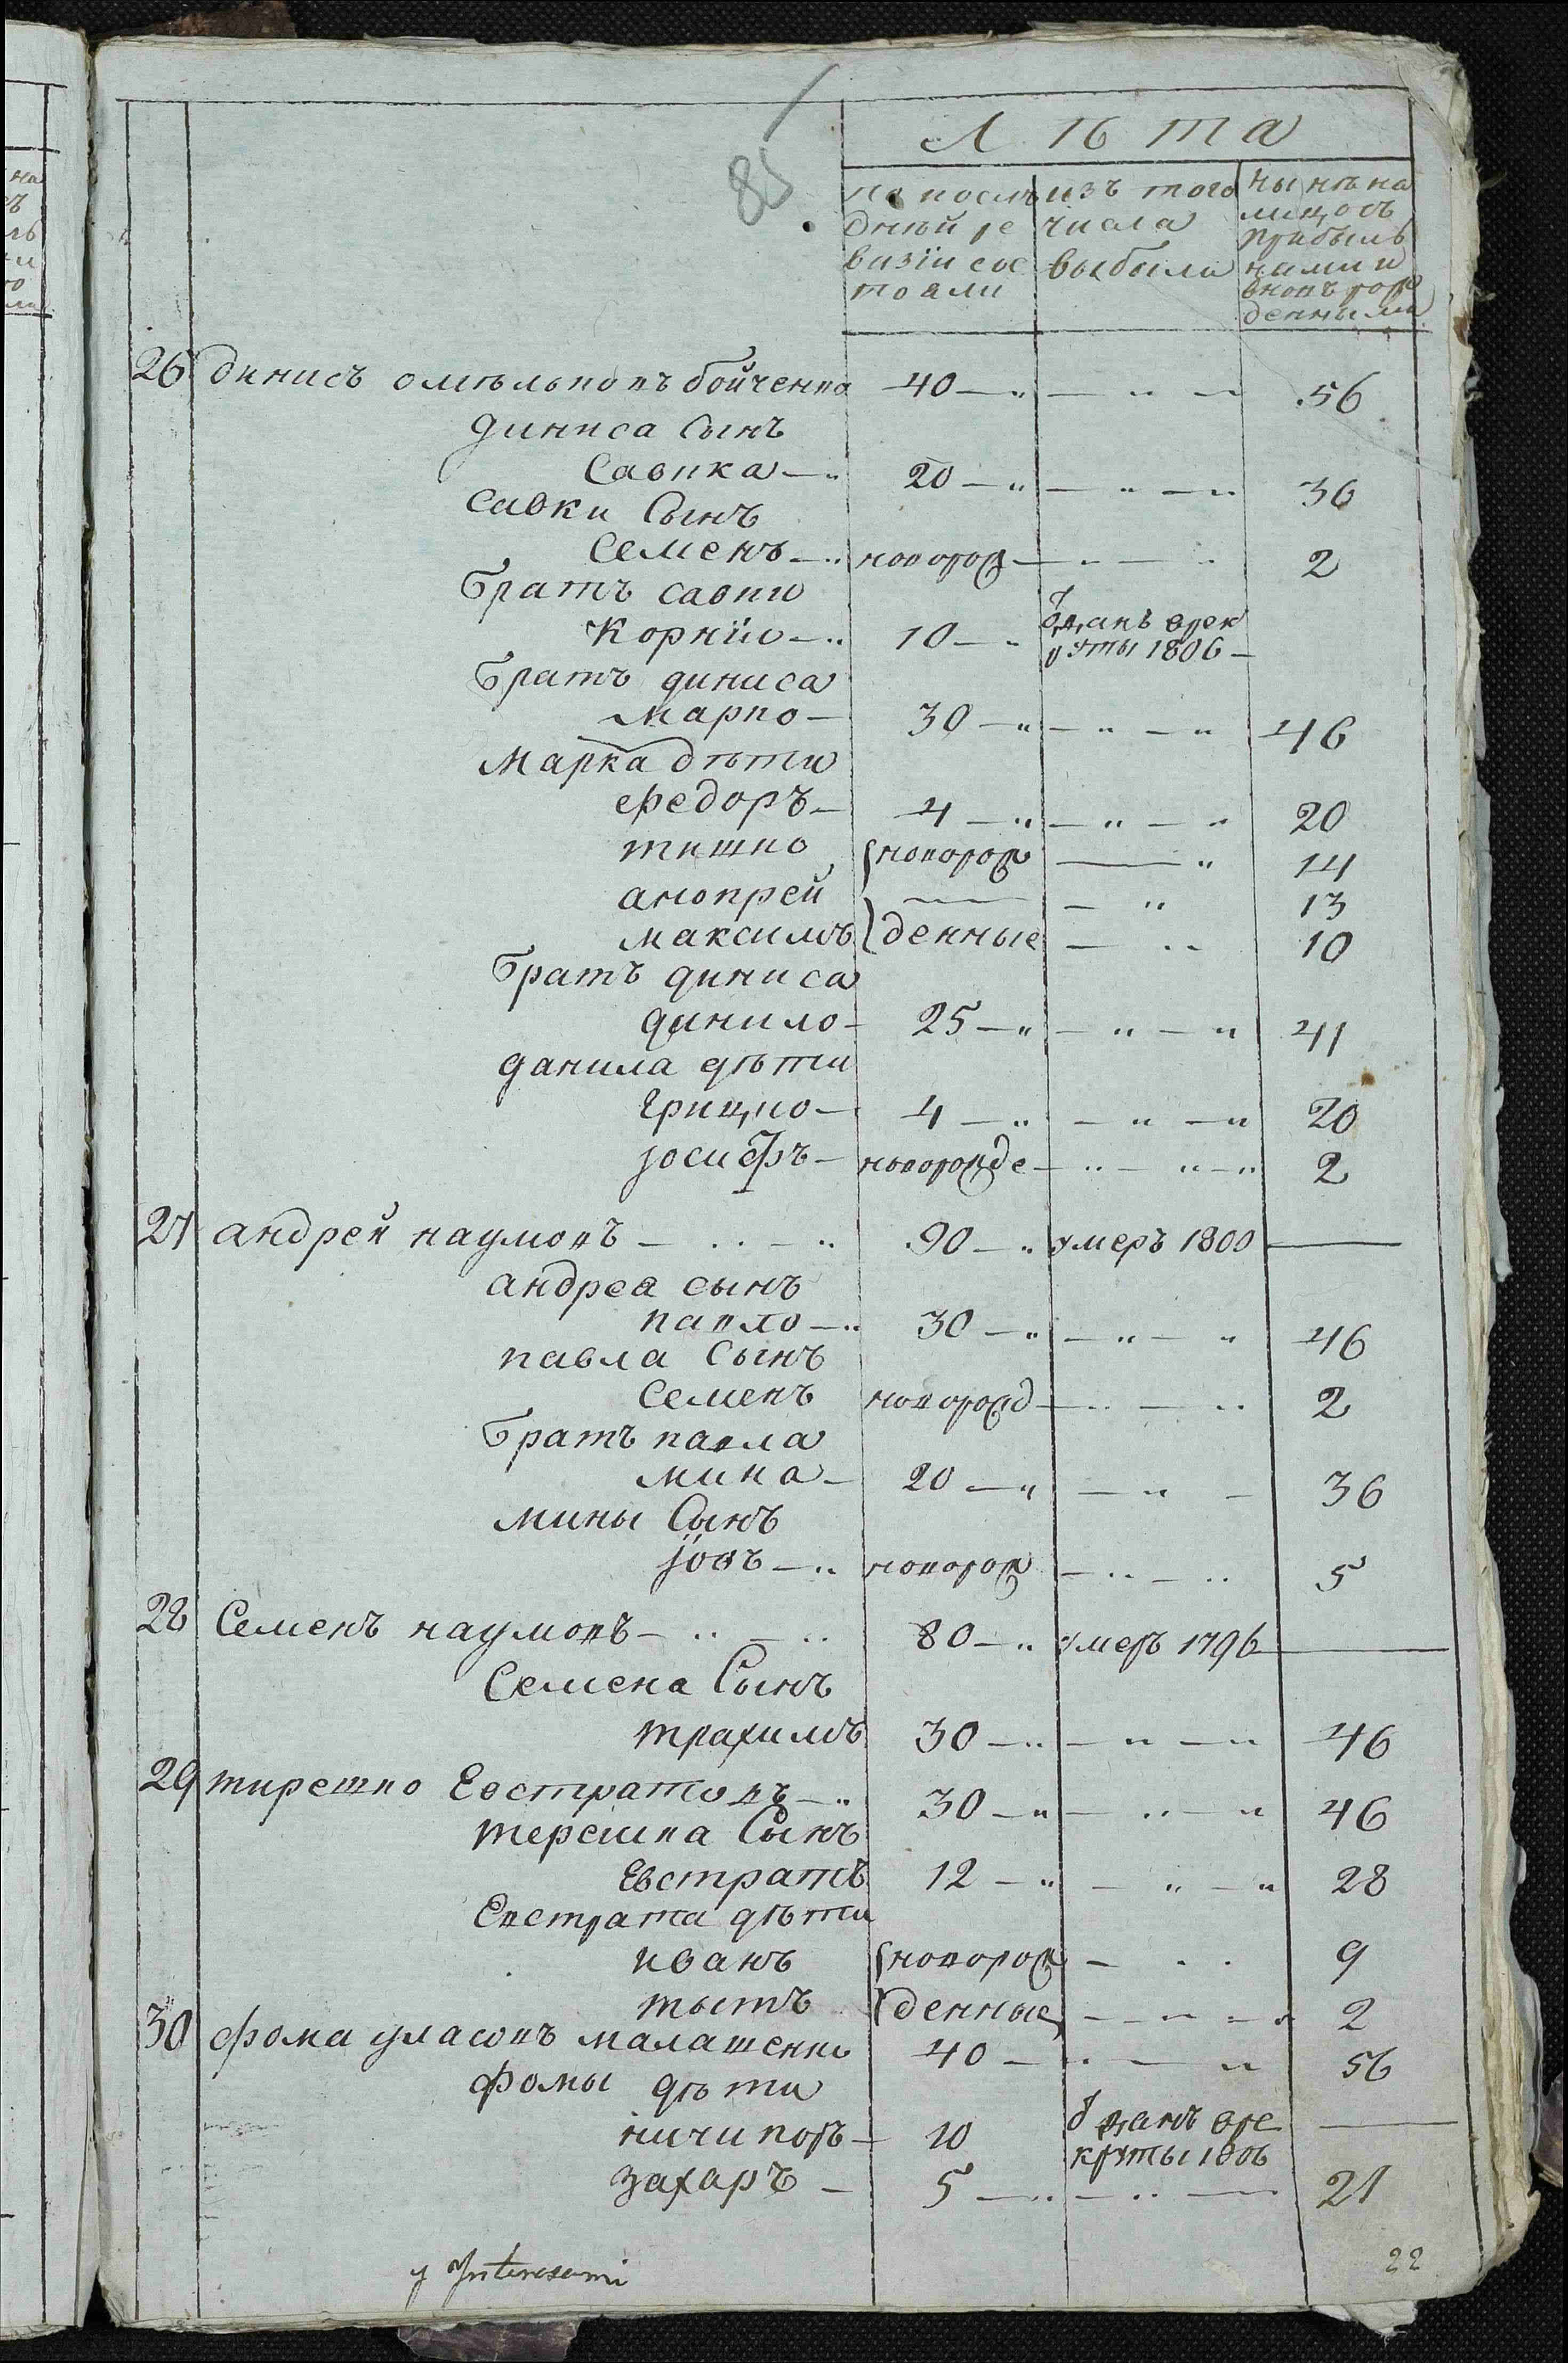 85
Лѣта
по послѣ изъ того ны нѣ на
днѣй ре числа лицо съ
визіи сос выбыло прибыль
тояли ными и
вновь рож
денными
26 динисъ омѣльновъ бойченко 40 — " — " — " 56
диниса Сынъ
Савка — " 20 — " — " — " 36
савки Сынъ
Семенъ — " новорож — " — " 2
братъ савки
Корнѣй — " 10 — " ѿданъ врек
руты 1806 —
братъ диниса
марко — 30 — " — " — " 46
марка дѣти
федоръ — 4 — " — " — " 20
тишко новорож — " 14
анопрей — " 13
максимъ денные — " 10
братъ диниса
данило — 25 — " — " — " 41
данила дѣти
грицко — 4 — " — " — " 20
іосифъ — новорожде — " — " — " 2
27 андрей наумовъ — " — " 90 — " умеръ 1800 —
андрея сынъ
павло — " 30 — " — " — " 46
павла Сынъ
семенъ новорожд — " — " 2
братъ павла
мина — 20 — " — " — 36
мины Сынъ
іовъ — " новорож — " — " 5
28 Семенъ наумовъ — " — " 80 — " умеръ 1796 —
Семена Сынъ
трахимъ 30 — " — " — " 46
29 тирешко Евстратовъ — " 30 — " — " — " 46
терешка Сынъ
Евстратъ 12 — " — " — " 28
Евстрата дѣти
иванъ новорож — " 9
титъ денные — " — " 2
30 фома уласовъ малашенко 40 — " — " 56
фомы дѣти
ничипоръ — 10 ѿданъ вре —
круты 1806
захаръ — 5 — " — " — 21
22